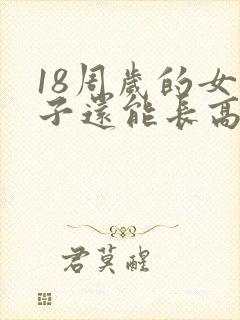 18周歲的女
子還能長高
君莫醒